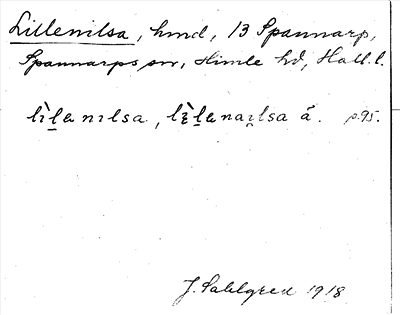 Lillenilsa, hmd, 13 Spannarp,
Spannarps sn, Himle hd, Hall. l.
lìl̠a nılsa, lìl̠a naı̯lsa å. p. 95.
J. Sahlgren 1918